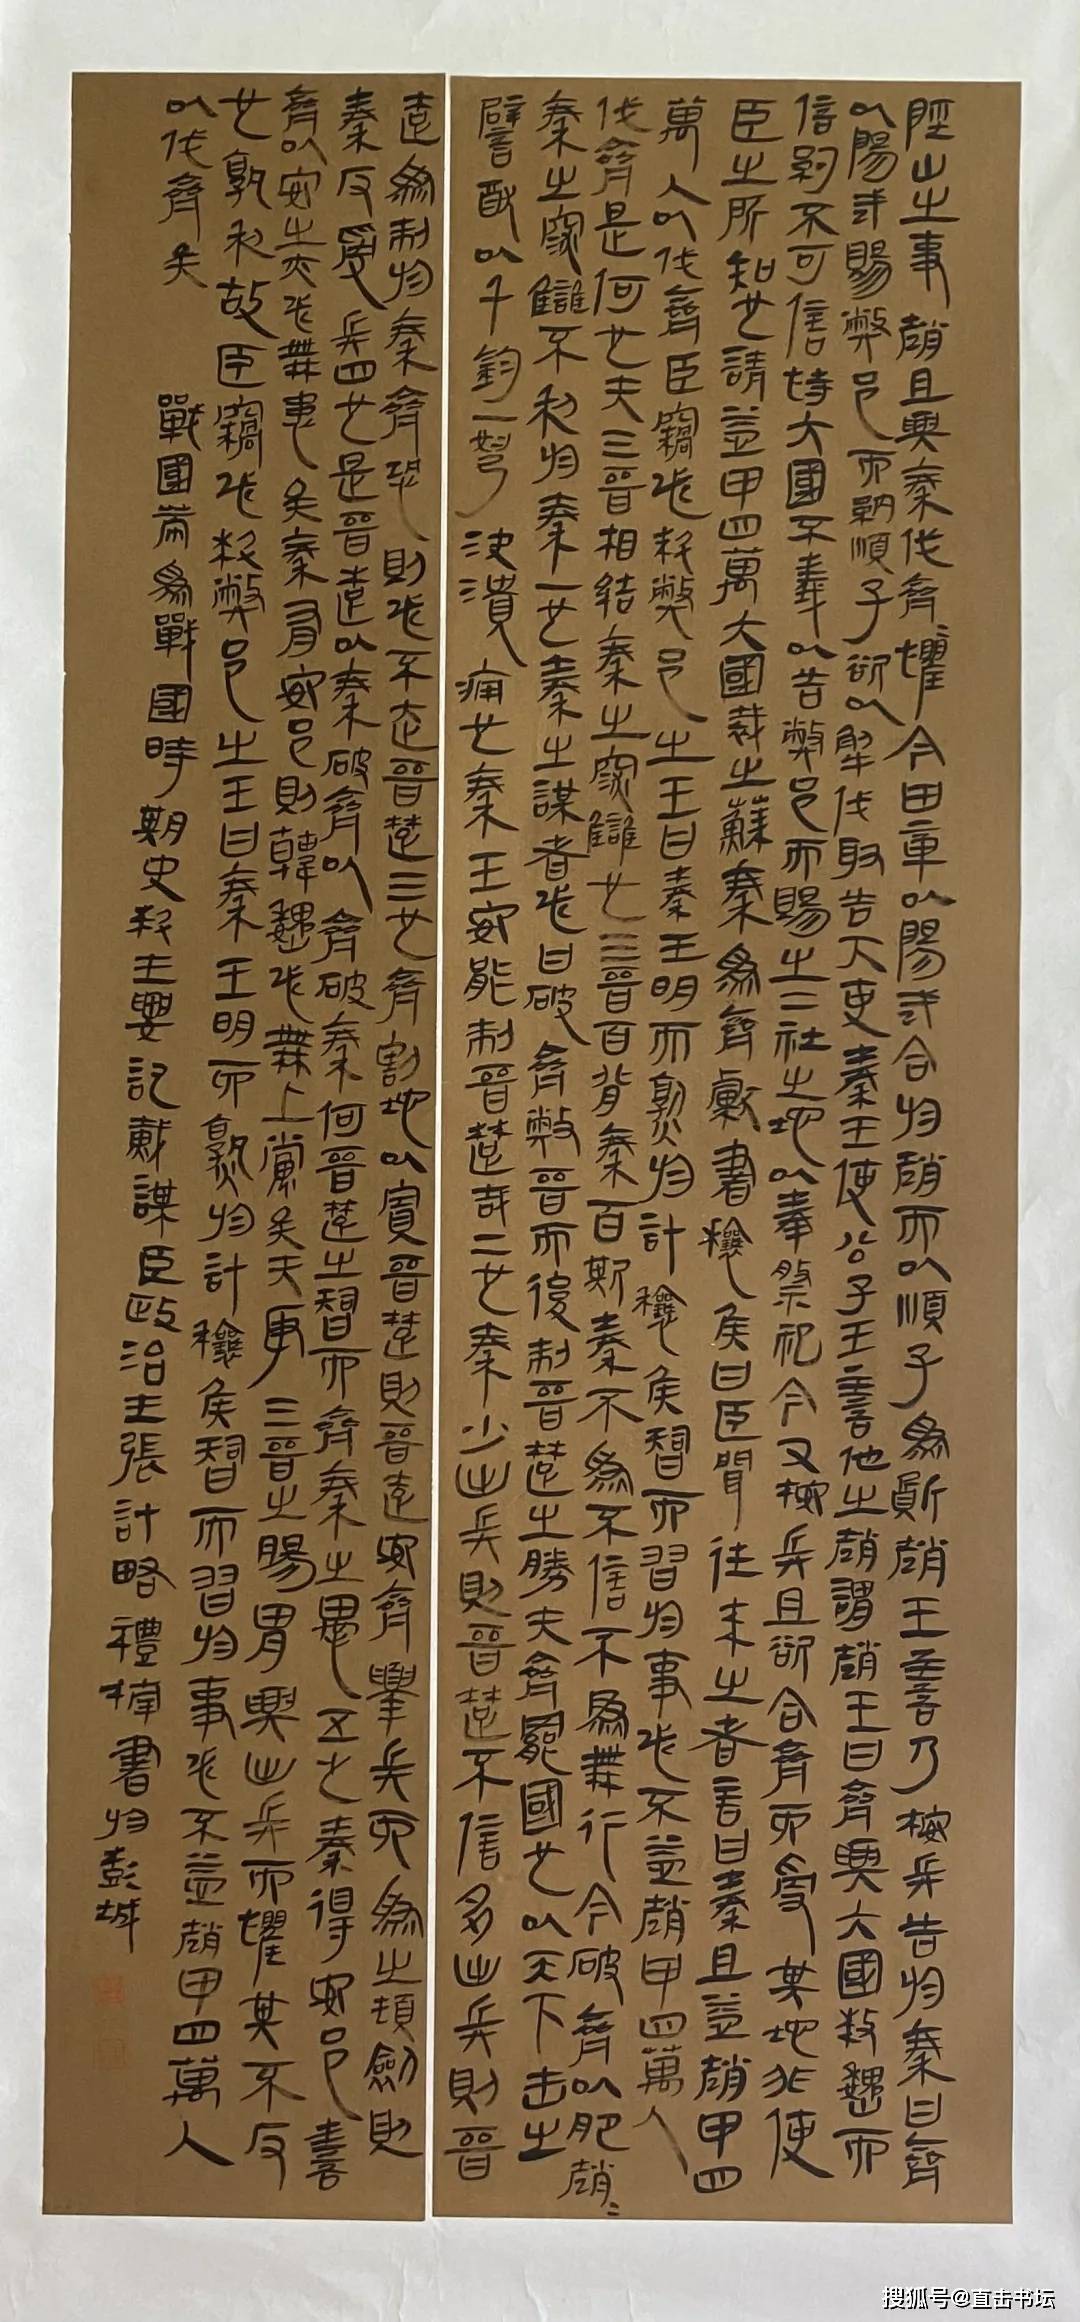 陘山之事趙且與秦伐齊齊懼令田章以陽武合於趙而以順子為質趙王喜乃案兵告於秦曰齊
以陽武賜弊邑而納順子欲以解伐敢告下吏秦王使公子王喜他之趙謂趙王曰齊與大國救魏而
倍約不可信恃大國不義以告弊邑而賜之二社之地以奉祭祀今又案兵且欲合齊而受其地非使
臣之所知也請益甲四萬大國裁之蘇秦為齊獻書穰侯曰臣聞往來之者言曰秦且益趙甲四
萬人以伐齊臣竊必弊邑之王曰秦王明而熟於計穰侯智而習於事必不益趙甲四萬人
伐齊是何也夫三晉相結秦之深讎也三晉百背秦百欺秦不為不信不為無行今破齊以肥趙趙
秦之深讎不利於秦一也秦之謀者必曰破齊弊晉而後制晉楚之勝夫齊罷國也以天下擊之
譬猶以千鈞一弩決潰癰也秦王安能制晉楚哉二也秦少出兵則晉楚不信多出兵則晉
楚為制於秦齊恐則必不走晉楚三也齊割地以實晉楚則晉楚安齊舉兵而為之頓劍則
秦反受兵四也是晉楚以秦破齊以齊破秦何晉楚之智而齊秦之愚五也秦得安邑善
齊以安之亦必無患矣秦有安邑則韓魏必無上黨矣夫取三晉之腸胃與出兵而懼其不反
也孰利故臣竊必弊邑之王曰秦王明而熟於計穰侯智而習於事必不益趙甲四萬人
以伐齊矣
戰國策為戰國時期史料主要記載謀臣政治主張計略禮楠書於彭城
搜狐号@直击书坛